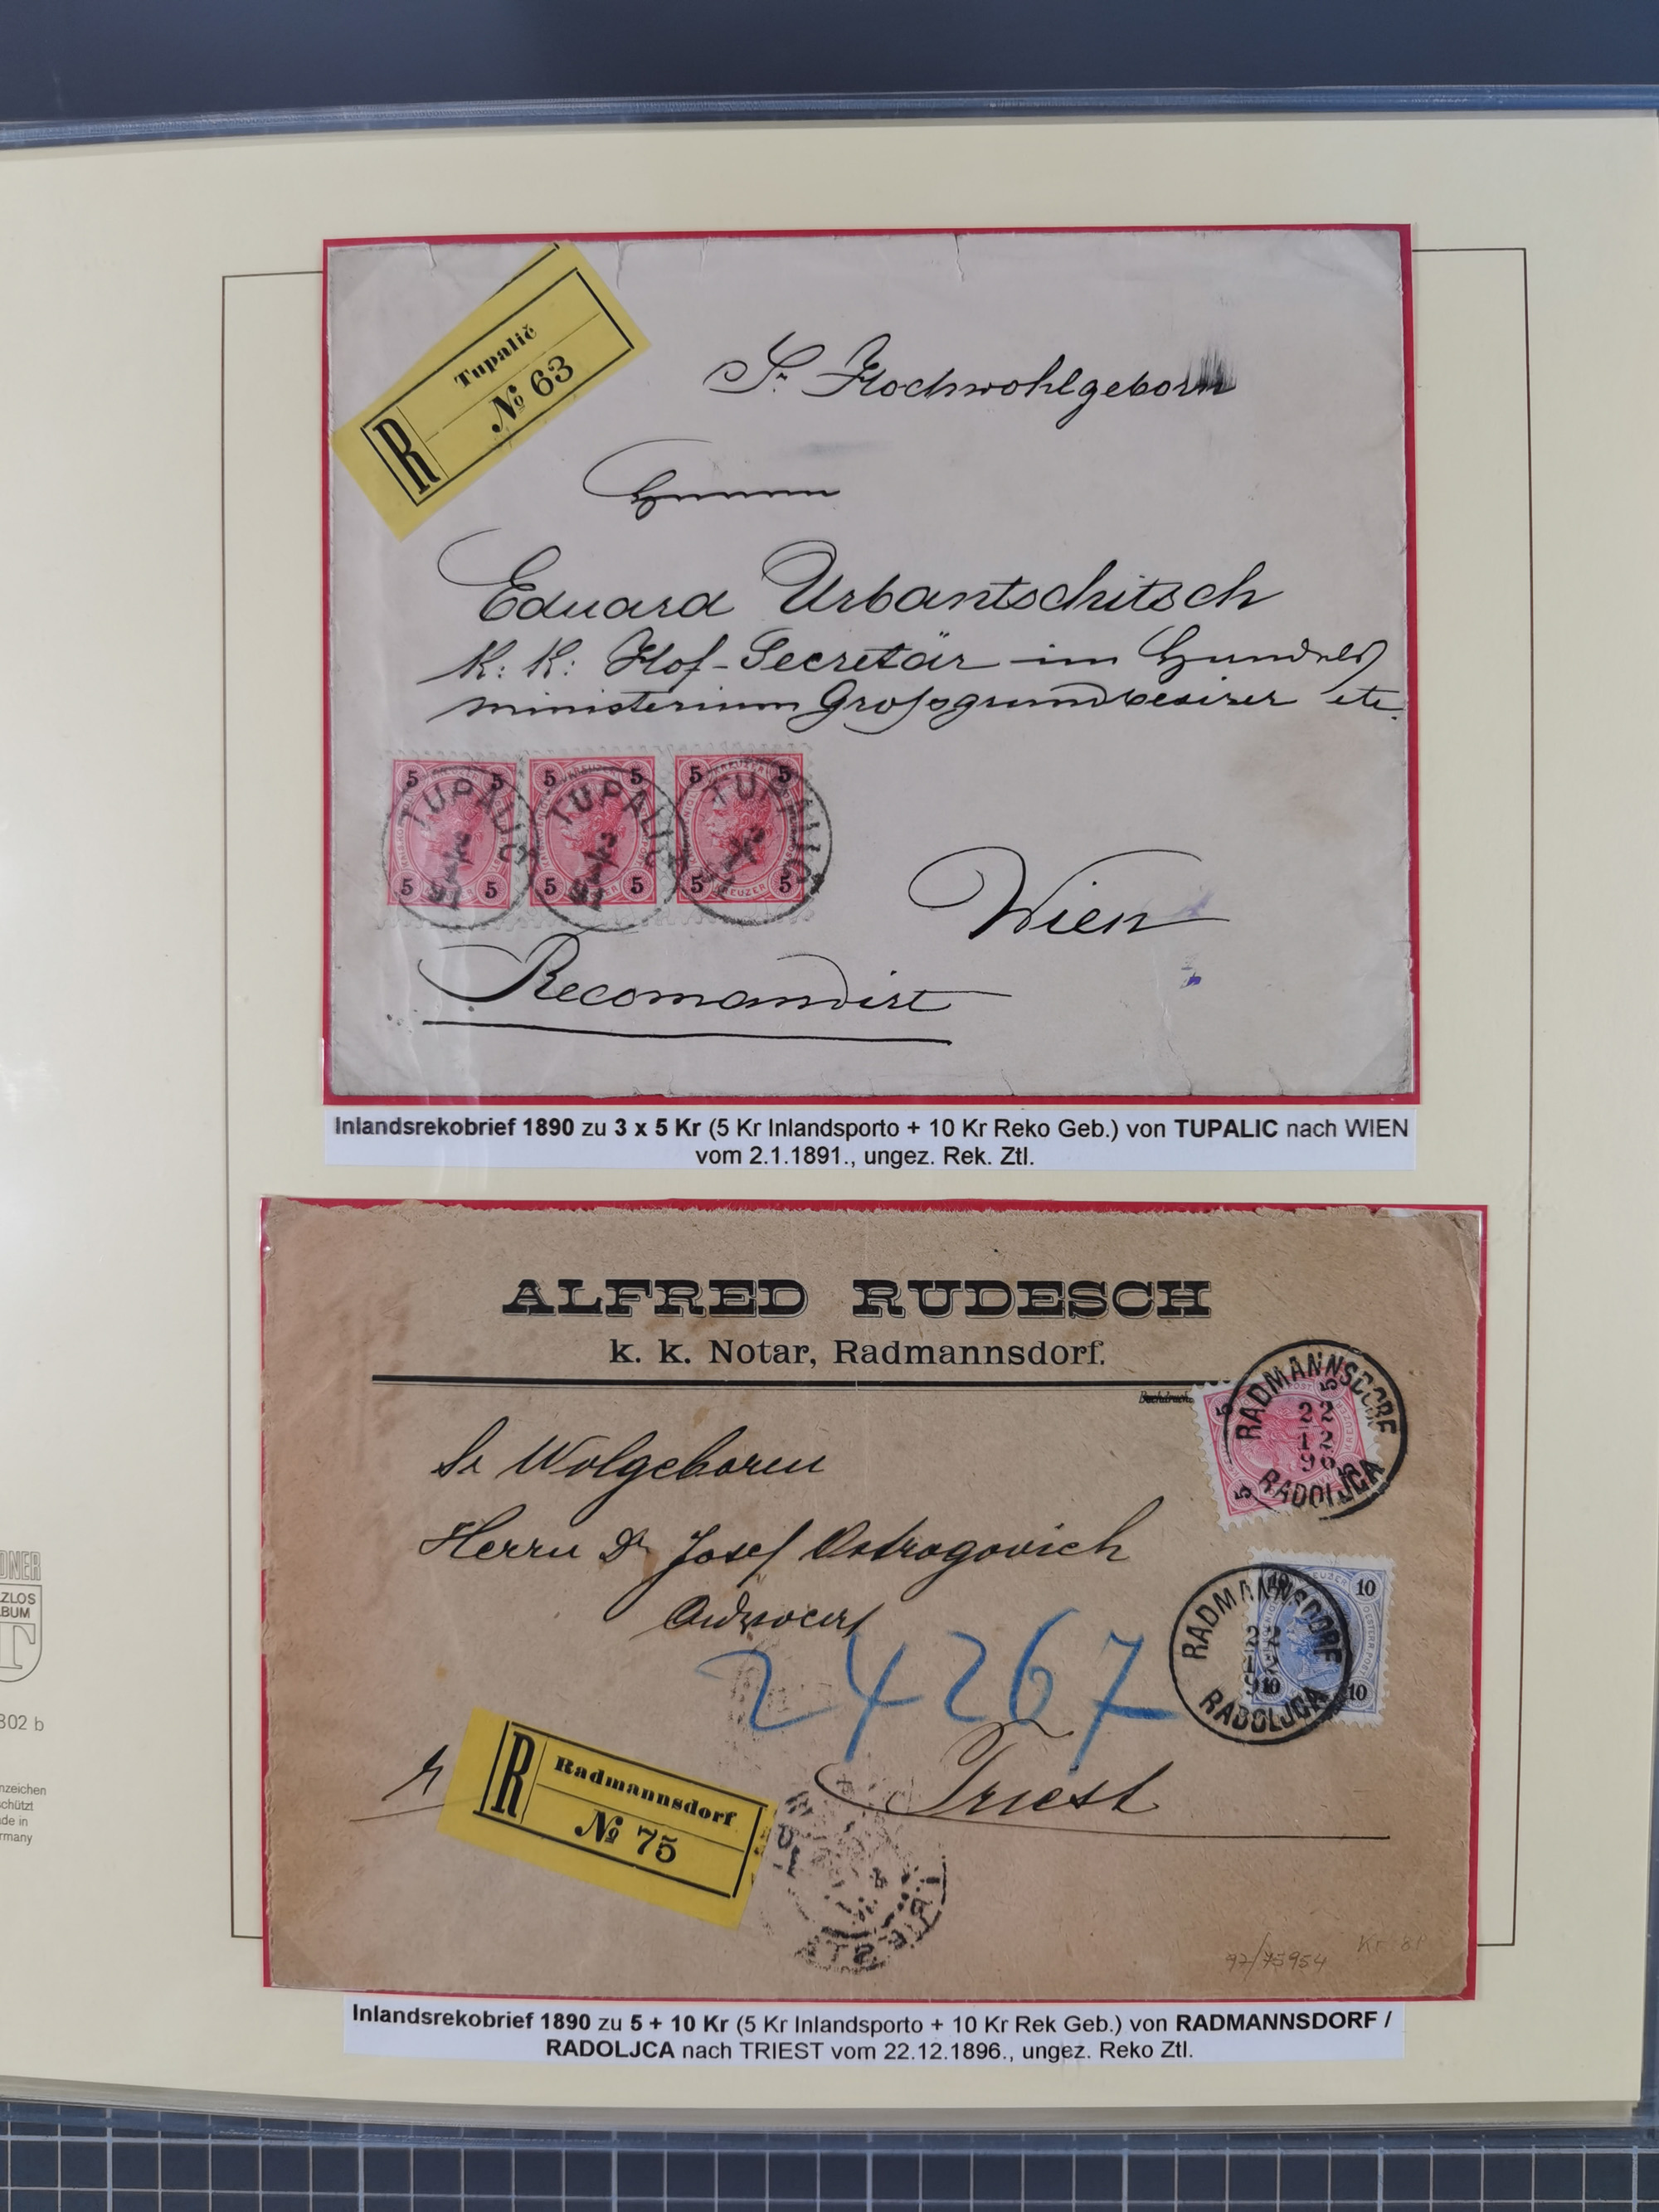 Tupalič
R № 63
Sr Hochwohlgeborn
Herrn
Eduard Urbantschitsch
K: K: Hof-Secretär im Handels
ministerium Grossgrundbesizer etc.
5 5 5 5 5 5
TUPALIČ TUPALIČ TUPALIČ
5 5 5 5 5 5
Wien
Recomandirt
Inlandsrekobrief 1890 zu 3 x 5 Kr (5 Kr Inlandsporto + 10 Kr Reko Geb.) von TUPALIC nach WIEN
vom 2.1.1891., ungez. Rek. Ztl.
ALFRED RUDESCH
k. k. Notar, Radmannsdorf.
RADMANNSDORF
22
12
96
RADOLJCA
Sr Wolgeboren
Herrn Dr Josef Ostrogovich
Advocat
24267
10
RADMANNSDORF
22
RADOLJCA
10 10
Triest
R Radmannsdorf
№ 75
TRIEST
97/75954
Inlandsrekobrief 1890 zu 5 + 10 Kr (5 Kr Inlandsporto + 10 Kr Rek Geb.) von RADMANNSDORF /
RADOLJCA nach TRIEST vom 22.12.1896., ungez. Reko Ztl.
DNER
ZLOS
BUM
T
802 b
nzeichen
chützt
de in
rmany